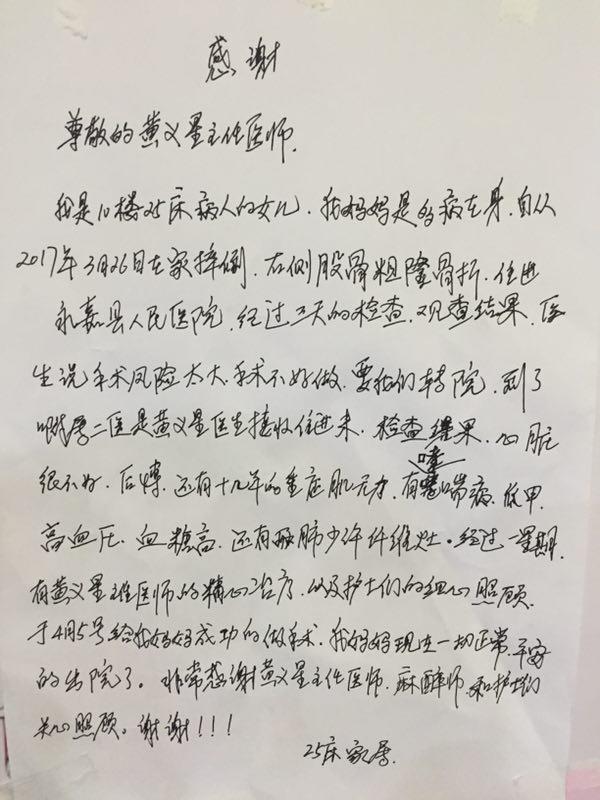 感谢
尊敬的黄义星主任医师.
我是10楼25床病人的女儿.我妈妈是多病在身.自从
2017年3月26日在家摔倒.右侧股骨粗隆骨折.住进
永嘉县人民医院.经过三天的检查.观查结果.医
生说手术风险太大.手术不好做.要我们转院.到了
附属二医是黄义星医生接收住进来.检查结果.心脏
很不好.房颤.还有十几年的重症肌无力.有哮喘病.低甲.
高血压.血糖高.还有两肺少许纤维灶。经过一星期.
有黄义星主任医师的精心治疗.以及护士们的细心照顾.
于4月5号给我妈妈成功的做手术.我妈妈现在一切正常.平安
的出院了。非常感谢黄义星主任医师.麻醉师.和护士们
关心照顾。谢谢!!!
25床家属.